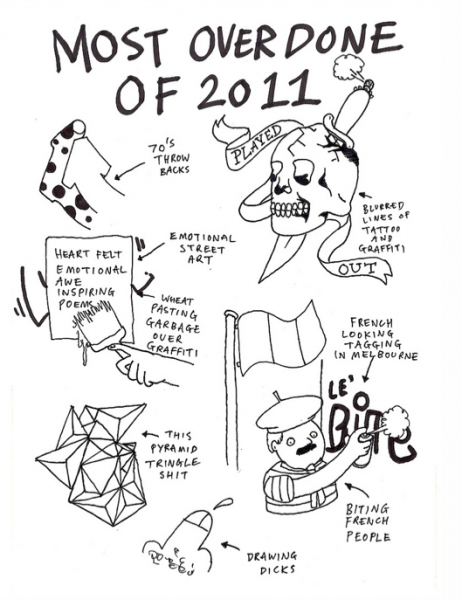 MOST OVERDONE
OF 2011
70'S
THROW
BACKS
PLAYED
OUT
BLURRED
LINES OF
TATTOO
AND
GRAFFITI
EMOTIONAL
STREET
ART
HEART FELT
EMOTIONAL
AWE
INSPIRING
POEMS
WHEAT
PASTING
GARBAGE
OVER
GRAFFITI
FRENCH
LOOKING
TAGGING
IN MELBOURNE
LE'
BITE
THIS
PYRAMID
TRINGLE
SHIT
BITING
FRENCH
PEOPLE
DRAWING
DICKS